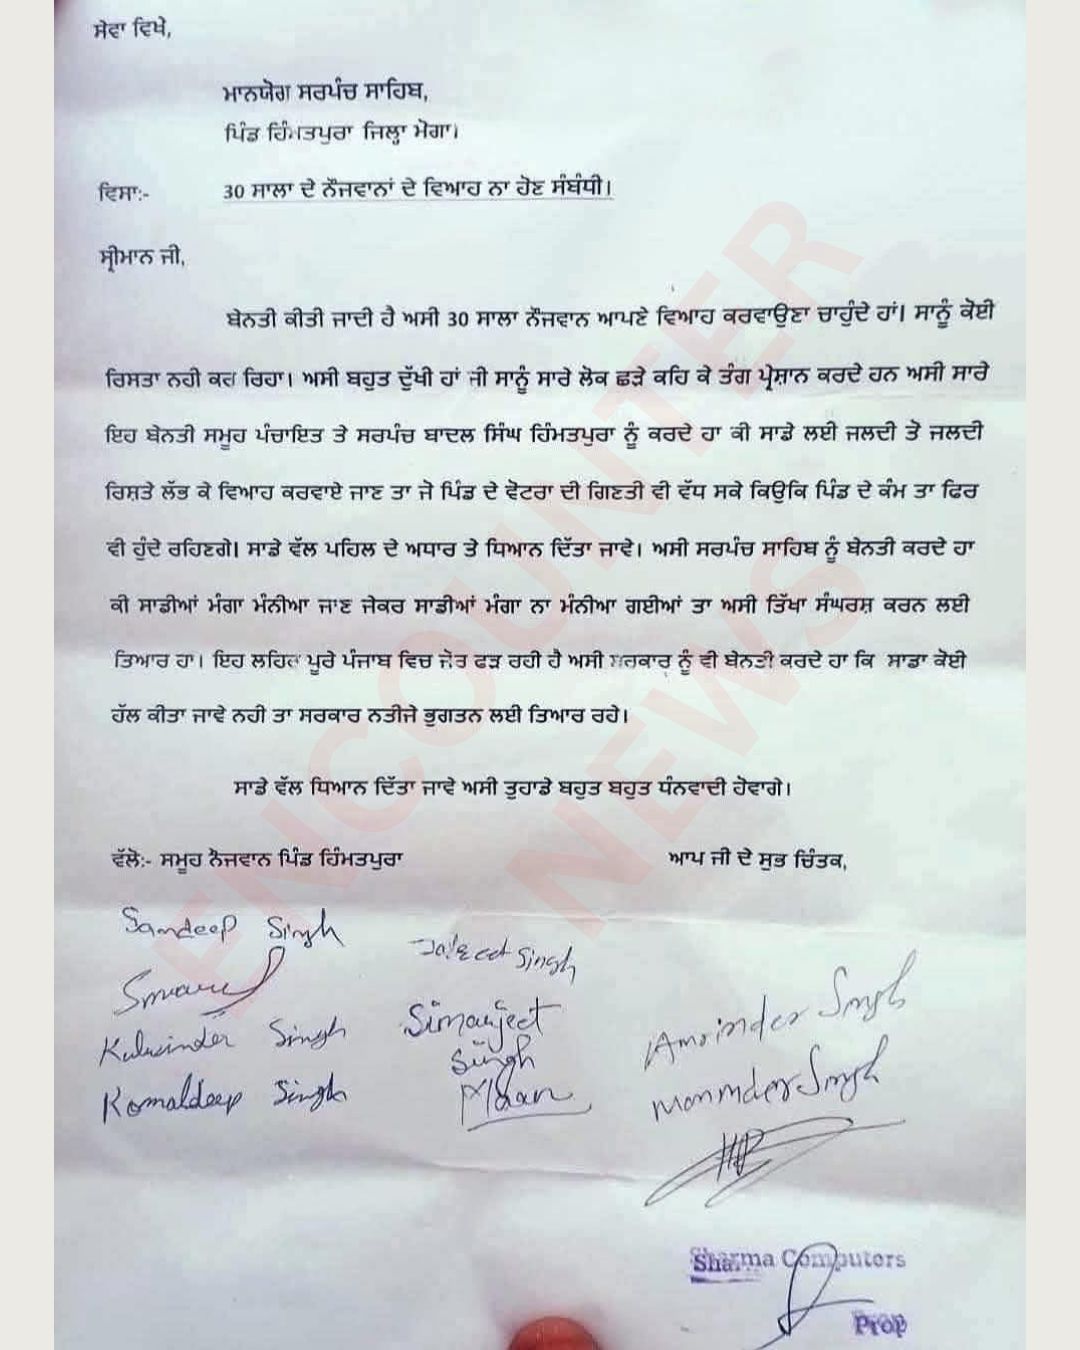 ਸੇਵਾ ਵਿਖੇ,
ਮਾਨਯੋਗ ਸਰਪੰਚ ਸਾਹਿਬ,
ਪਿੰਡ ਹਿੰਮਤਪੁਰਾ ਜਿਲ੍ਹਾ ਮੋਗਾ।
ਵਿਸਾ:- 30 ਸਾਲਾ ਦੇ ਨੌਜਵਾਨਾਂ ਦੇ ਵਿਆਹ ਨਾ ਹੋਣ ਸੰਬੰਧੀ।
ਸ੍ਰੀਮਾਨ ਜੀ,
ਬੇਨਤੀ ਕੀਤੀ ਜਾਦੀ ਹੈ ਅਸੀ 30 ਸਾਲਾ ਨੌਜਵਾਨ ਆਪਣੇ ਵਿਆਹ ਕਰਵਾਉਣਾ ਚਾਹੁੰਦੇ ਹਾਂ। ਸਾਨੂੰ ਕੋਈ
ਰਿਸਤਾ ਨਹੀ ਕਰ ਰਿਹਾ। ਅਸੀ ਬਹੁਤ ਦੁੱਖੀ ਹਾਂ ਜੀ ਸਾਨੂੰ ਸਾਰੇ ਲੋਕ ਛੜੇ ਕਹਿ ਕੇ ਤੰਗ ਪ੍ਰੇਸ਼ਾਨ ਕਰਦੇ ਹਨ ਅਸੀ ਸਾਰੇ
ਇਹ ਬੇਨਤੀ ਸਮੂਹ ਪੰਚਾਇਤ ਤੇ ਸਰਪੰਚ ਬਾਦਲ ਸਿੰਘ ਹਿੰਮਤਪੁਰਾ ਨੂੰ ਕਰਦੇ ਹਾ ਕੀ ਸਾਡੇ ਲਈ ਜਲਦੀ ਤੋ ਜਲਦੀ
ਰਿਸ਼ਤੇ ਲੱਭ ਕੇ ਵਿਆਹ ਕਰਵਾਏ ਜਾਣ ਤਾ ਜੋ ਪਿੰਡ ਦੇ ਵੋਟਰਾ ਦੀ ਗਿਣਤੀ ਵੀ ਵੱਧ ਸਕੇ ਕਿਉਕਿ ਪਿੰਡ ਦੇ ਕੰਮ ਤਾ ਫਿਰ
ਵੀ ਹੁੰਦੇ ਰਹਿਣਗੇ। ਸਾਡੇ ਵੱਲ ਪਹਿਲ ਦੇ ਅਧਾਰ ਤੇ ਧਿਆਨ ਦਿੱਤਾ ਜਾਵੇ। ਅਸੀ ਸਰਪੰਚ ਸਾਹਿਬ ਨੂੰ ਬੇਨਤੀ ਕਰਦੇ ਹਾ
ਕੀ ਸਾਡੀਆਂ ਮੰਗਾ ਮੰਨੀਆ ਜਾਣ ਜੇਕਰ ਸਾਡੀਆਂ ਮੰਗਾ ਨਾ ਮੰਨੀਆ ਗਈਆਂ ਤਾ ਅਸੀ ਤਿੱਖਾ ਸੰਘਰਸ਼ ਕਰਨ ਲਈ
ਤਿਆਰ ਹਾ। ਇਹ ਲਹਿਰ ਪੂਰੇ ਪੰਜਾਬ ਵਿਚ ਜ਼ੋਰ ਫੜ ਰਹੀ ਹੈ ਅਸੀ ਸਰਕਾਰ ਨੂੰ ਵੀ ਬੇਨਤੀ ਕਰਦੇ ਹਾ ਕਿ ਸਾਡਾ ਕੋਈ
ਹੱਲ ਕੀਤਾ ਜਾਵੇ ਨਹੀ ਤਾ ਸਰਕਾਰ ਨਤੀਜੇ ਭੁਗਤਨ ਲਈ ਤਿਆਰ ਰਹੇ।
ਸਾਡੇ ਵੱਲ ਧਿਆਨ ਦਿੱਤਾ ਜਾਵੇ ਅਸੀ ਤੁਹਾਡੇ ਬਹੁਤ ਬਹੁਤ ਧੰਨਵਾਦੀ ਹੋਵਾਗੇ।
ਵੱਲੋ:- ਸਮੂਹ ਨੌਜਵਾਨ ਪਿੰਡ ਹਿੰਮਤਪੁਰਾ ਆਪ ਜੀ ਦੇ ਸੁਭ ਚਿੰਤਕ,
Sandeep Singh
Singh
Kulwinder Singh
Komaldeep Singh
Simarjeet
Singh
Amrinder Singh
Maninder Singh
Sharma Computers
Prop
ENCOUNTER
NEWS